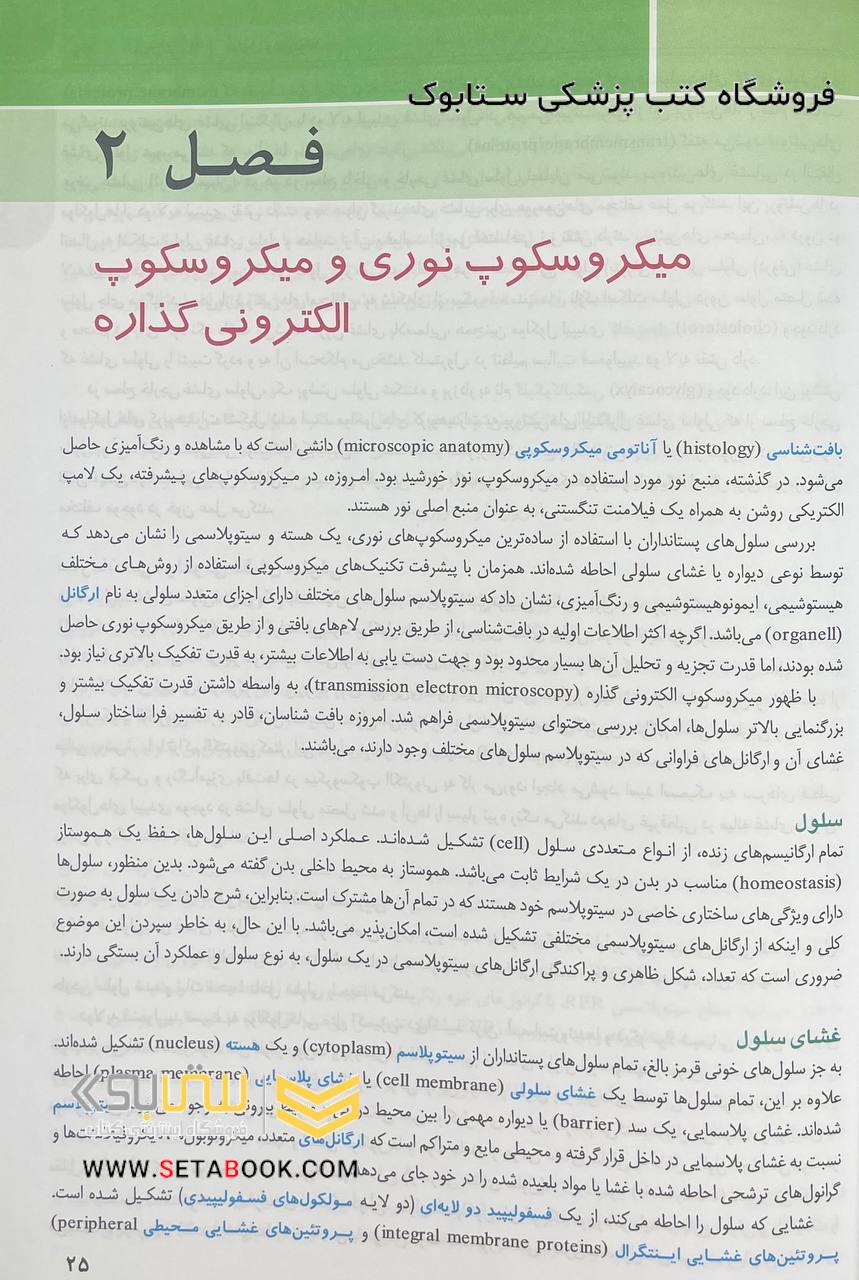 فروشگاه کتب پزشکی ستابوک
فصل ۲
میکروسکوپ نوری و میکروسکوپ
الکترونی گذاره
بافت‌شناسی (histology) یا آناتومی میکروسکوپی (microscopic anatomy) دانشی است که با مشاهده و رنگ‌آمیزی حاصل
می‌شود. در گذشته، منبع نور مورد استفاده در میکروسکوپ، نور خورشید بود. امروزه، در میکروسکوپ‌های پیشرفته، یک لامپ
الکتریکی روشن به همراه یک فیلامنت تنگستنی، به عنوان منبع اصلی نور هستند.
بررسی سلول‌های پستانداران با استفاده از ساده‌ترین میکروسکوپ‌های نوری، یک هسته و سیتوپلاسمی را نشان می‌دهد که
توسط نوعی دیواره یا غشای سلولی احاطه شده‌اند. همزمان با پیشرفت تکنیک‌های میکروسکوپی، استفاده از روش‌های مختلف
هیستوشیمی، ایمونوهیستوشیمی و رنگ‌آمیزی، نشان داد که سیتوپلاسم سلول‌های مختلف دارای اجزای متعدد سلولی به نام ارگانل
(organell) می‌باشد. اگرچه اکثر اطلاعات اولیه در بافت‌شناسی، از طریق بررسی لام‌های بافتی و از طریق میکروسکوپ نوری حاصل
شده بودند، اما قدرت تجزیه و تحلیل آن‌ها بسیار محدود بود و جهت دست یابی به اطلاعات بیشتر، به قدرت تفکیک بالاتری نیاز بود.
با ظهور میکروسکوپ الکترونی گذاره (transmission electron microscopy)، به واسطه داشتن قدرت تفکیک بیشتر و
بزرگنمایی بالاتر سلول‌ها، امکان بررسی محتوای سیتوپلاسمی فراهم شد. امروزه بافت شناسان، قادر به تفسیر فرا ساختار سلول،
غشای آن و ارگانل‌های فراوانی که در سیتوپلاسم سلول‌های مختلف وجود دارند، می‌باشند.
سلول
تمام ارگانیسم‌های زنده، از انواع متعددی سلول (cell) تشکیل شده‌اند. عملکرد اصلی این سلول‌ها، حفظ یک هموستاز
(homeostasis) مناسب در بدن در یک شرایط ثابت می‌باشد. هموستاز به محیط داخلی بدن گفته می‌شود. بدین منظور، سلول‌ها
دارای ویژگی‌های ساختاری خاصی در سیتوپلاسم خود هستند که در تمام آن‌ها مشترک است. بنابراین، شرح دادن یک سلول به صورت
کلی و اینکه از ارگانل‌های سیتوپلاسمی مختلفی تشکیل شده است، امکان‌پذیر می‌باشد. با این حال، به خاطر سپردن این موضوع
ضروری است که تعداد، شکل ظاهری و پراکندگی ارگانل‌های سیتوپلاسمی در یک سلول، به نوع سلول و عملکرد آن بستگی دارند.
غشای سلول
به جز سلول‌های خونی قرمز بالغ، تمام سلول‌های پستانداران از سیتوپلاسم (cytoplasm) و یک هسته (nucleus) تشکیل شده‌اند.
علاوه بر این، تمام سلول‌ها توسط یک غشای سلولی (cell membrane) یا غشای پلاسمایی (plasma membrane) احاطه
شده‌اند. غشای پلاسمایی، یک سد (barrier) یا دیواره مهمی را بین محیط
نسبت به غشای پلاسمایی در داخل قرار گرفته و محیطی مایع و متراکم است که ارگانل‌های متعدد،
گرانول‌های ترشحی احاطه شده با غشا یا مواد بلعیده شده را در خود جای
غشایی که سلول را احاطه می‌کند، از یک فسفولیپید دو لایه‌ای (دو لایه مولکول‌های فسفولیپیدی) تشکیل شده است.
پروتئین‌های غشایی اینتگرال (integral membrane proteins) و پروتئین‌های غشایی محیطی (peripheral
ستابوک
فروشگاه اینترنتی کتاب
WWW.SETABOOK.COM
۲۵